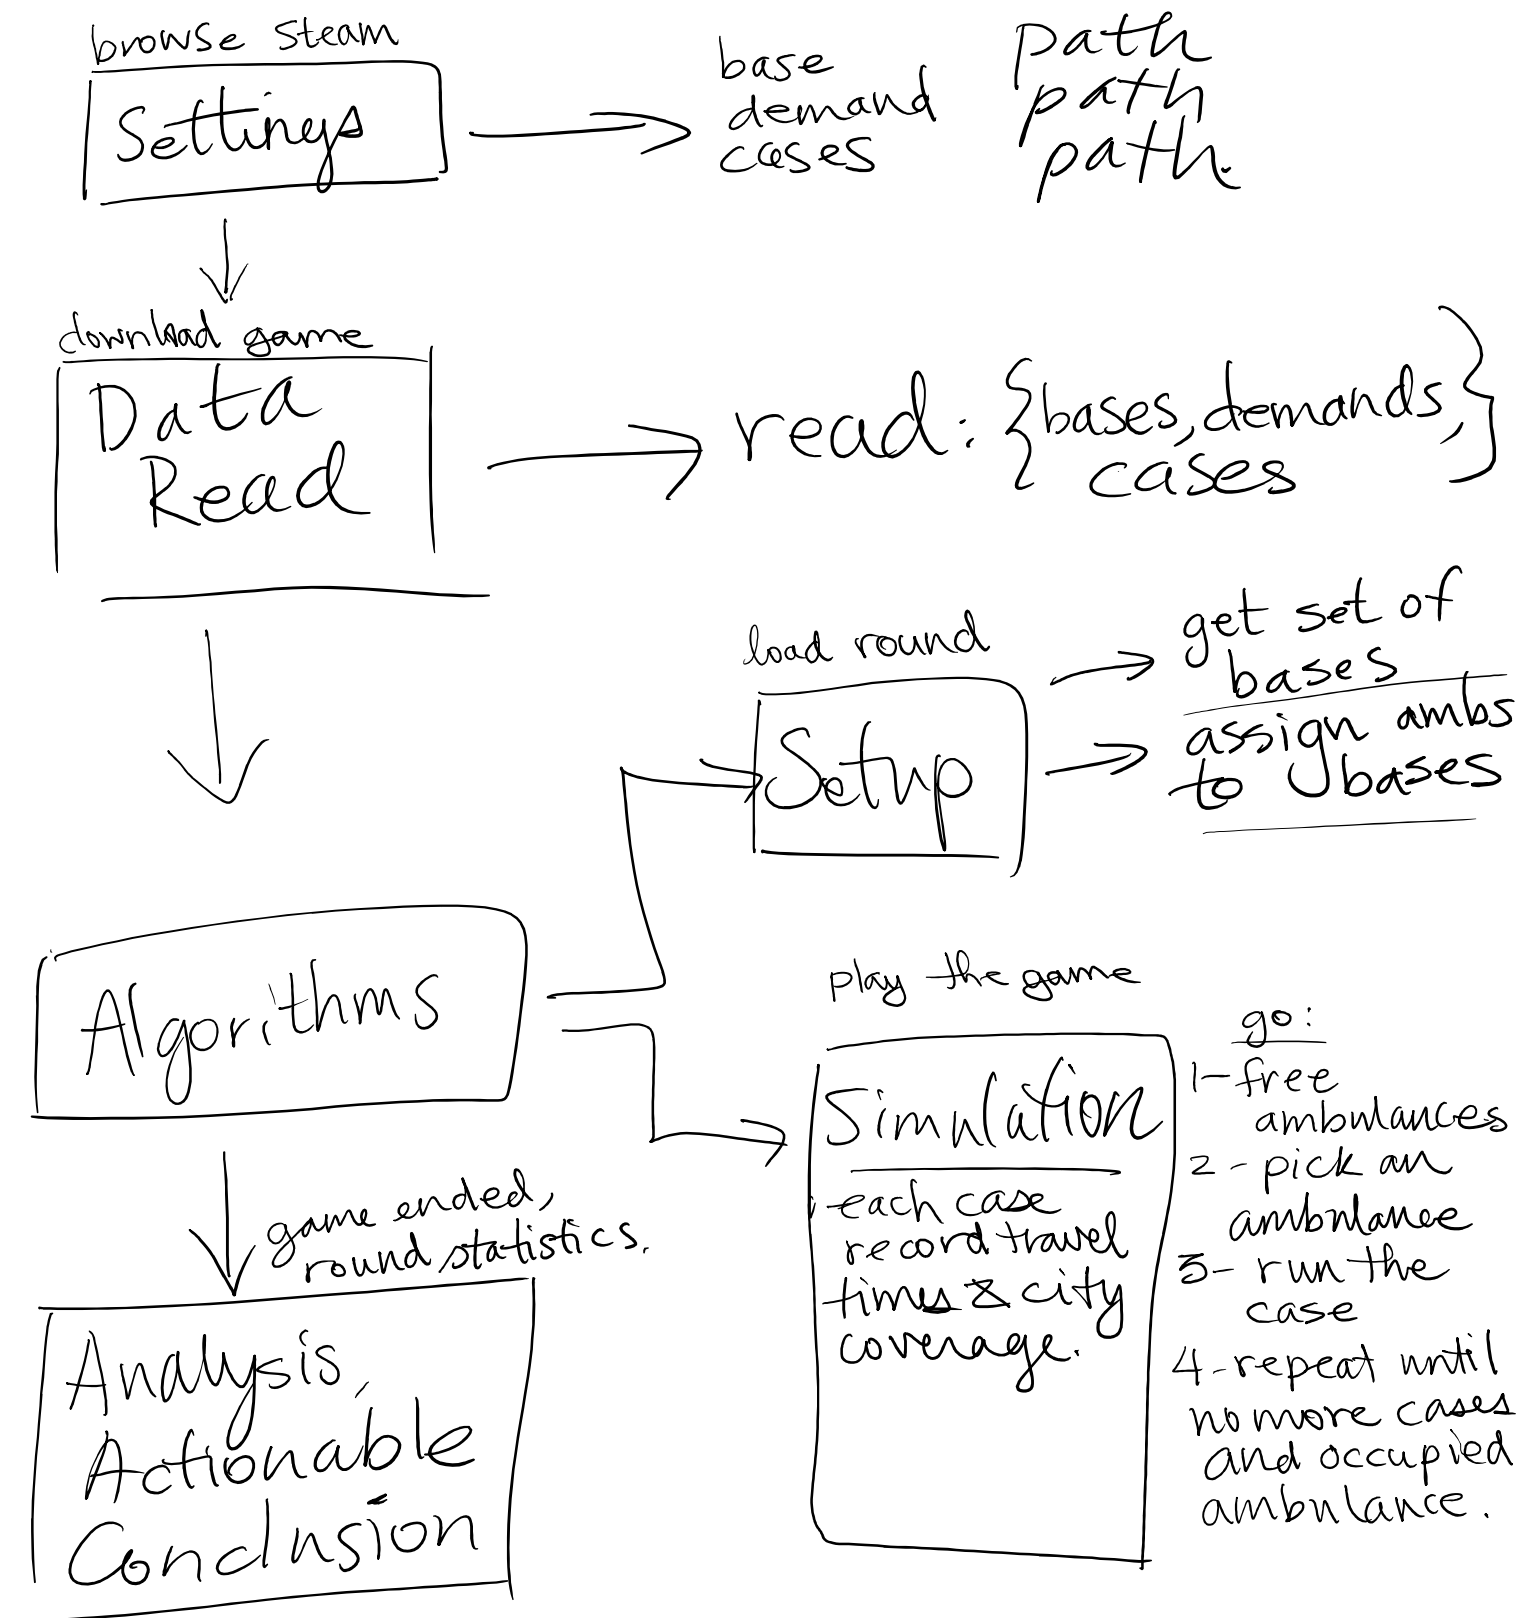 browse steam
Settings
base path
demand path
cases path.
download game
Data
Read
read: {bases, demands,
cases}
load round
Setup
get set of
bases
assign ambs
to bases
Algorithms
play the game
Simulation
-each case
record travel
times & city
coverage.
go:
1- free
ambulances
2 - pick an
ambulance
3- run the
case
4- repeat until
no more cases
and occupied
ambulance.
game ended,
round statistics.
Analysis,
Actionable
Conclusion